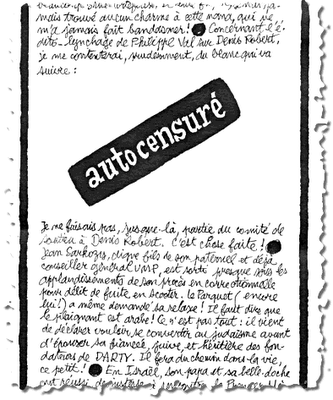 mais trouvé aucun charme à cette nana, qui ne
m'a jamais fait bandouiner! Concernant l'é-
dito-lynchage de Philippe Val sur Denis Robert,
je me contenterai, prudemment, du blanc qui va
suivre :
autocensuré
Je ne faisais pas, jusque-là, partie du comité de
soutien à Denis Robert. C'est chose faite!
Jean Sarkozy, digne fils de son paternel et déjà
conseiller général UMP, est sorti presque sous les
applaudissements de son procès en correctionnelle
pour délit de fuite en scooter. Le Parquet (encore
lui!) a même demandé sa relaxe! Il faut dire que
le plaignant est arabe! Ce n'est pas tout : il vient
de déclarer vouloir se convertir au judaïsme avant
d'épouser sa fiancée, juive, et héritière des fon-
dateurs de DARTY. Il fera du chemin dans la vie,
ce petit! En Israël, son papa et sa belle-doche